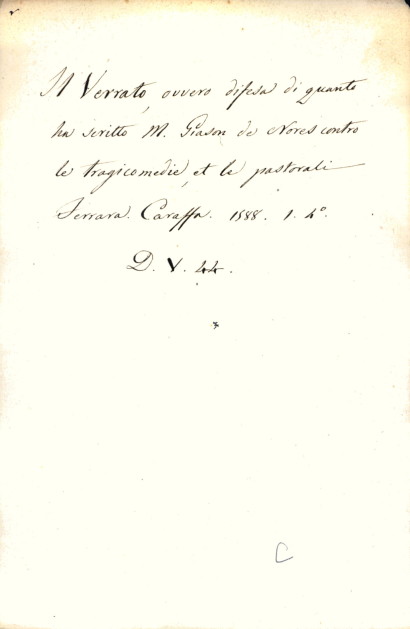 Il Verrato, ovvero difesa di quanto
ha scritto M. Giason de Nores contro
le tragicomedie, et le pastorali
Ferrara. Caraffa. 1588. 1. 4°.
D. V. 44.
C